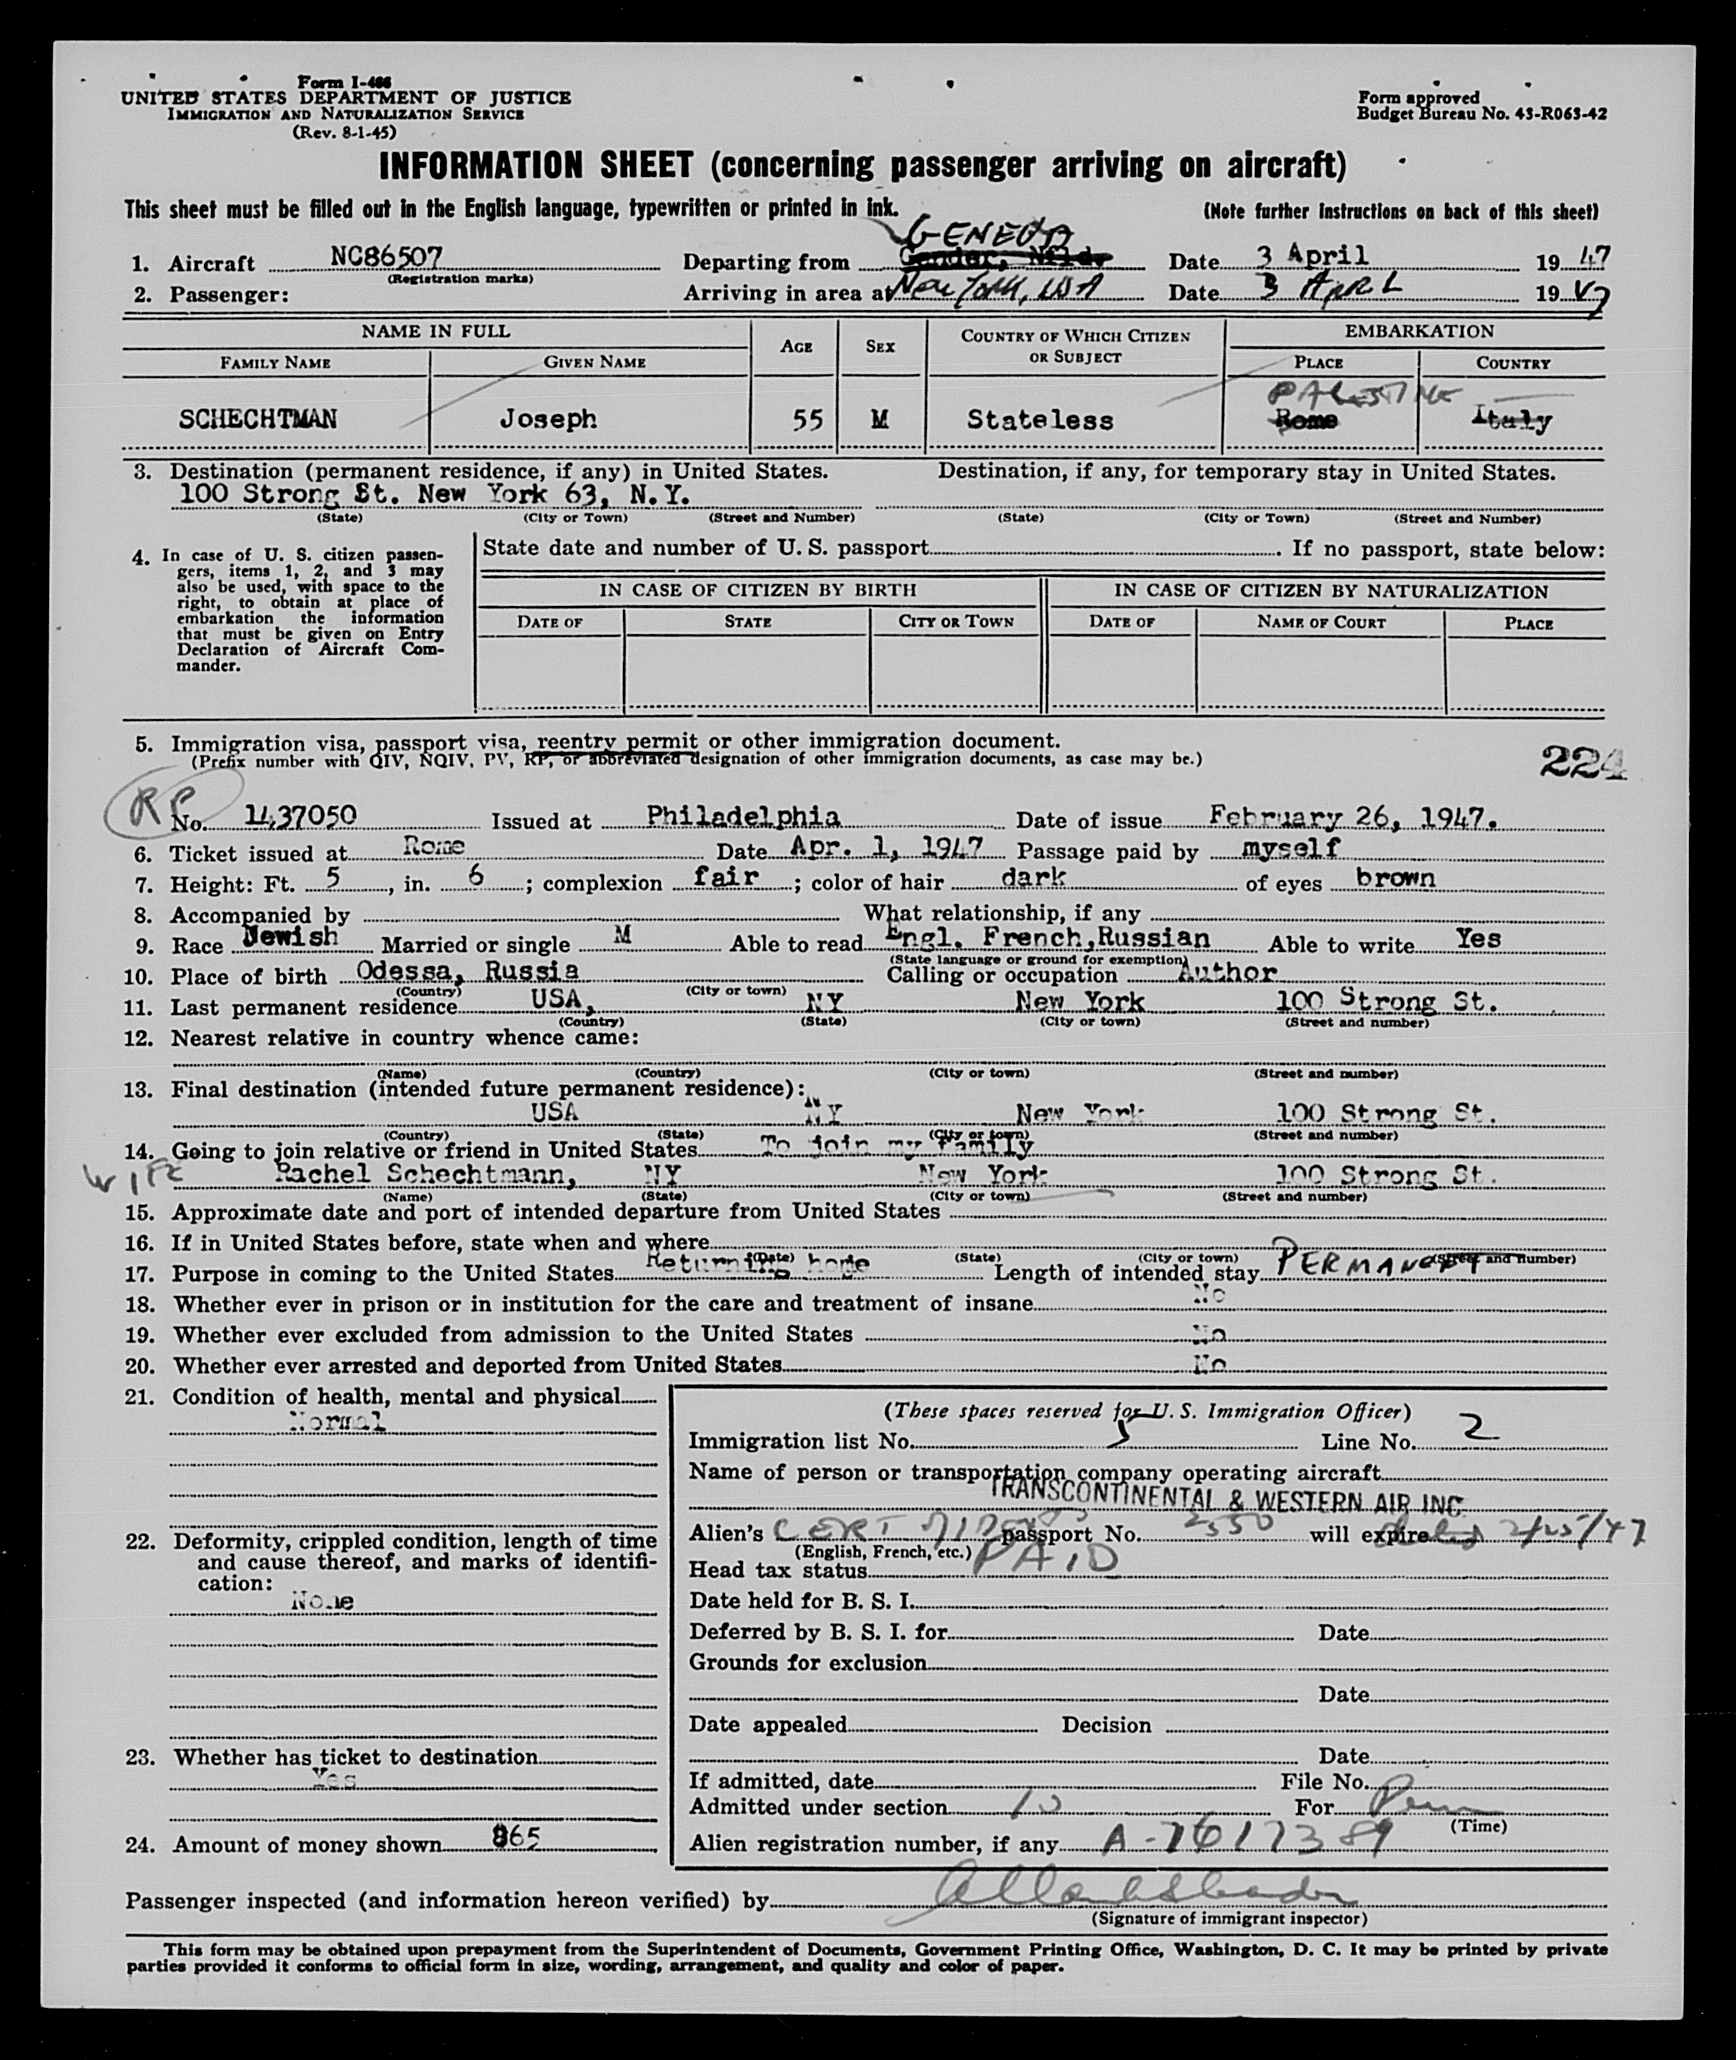 Form I-466
UNITED STATES DEPARTMENT OF JUSTICE
IMMIGRATION AND NATURALIZATION SERVICE
(Rev. 8-1-45)
Form approved
Budget Bureau No. 43-R063-42
INFORMATION SHEET (concerning passenger arriving on aircraft)
This sheet must be filled out in the English language, typewritten or printed in ink.
(Note further instructions on back of this sheet)
GENEVA
1. Aircraft NC86507 Departing from Gander, Nfld. Date 3 April 19 47
(Registration marks)
2. Passenger: Arriving in area at New York, USA Date 3 APRL 19 47
NAME IN FULL AGE SEX COUNTRY OF WHICH CITIZEN OR SUBJECT EMBARKATION
FAMILY NAME GIVEN NAME PLACE COUNTRY
PALESTINE
SCHECHTMAN Joseph 55 M Stateless Rome Italy
3. Destination (permanent residence, if any) in United States. Destination, if any, for temporary stay in United States.
100 Strong St. New York 63, N.Y.
(State) (City or Town) (Street and Number) (State) (City or Town) (Street and Number)
4. In case of U. S. citizen passen-
gers, items 1, 2, and 3 may
also be used, with space to the
right, to obtain at place of
embarkation the information
that must be given on Entry
Declaration of Aircraft Com-
mander.
State date and number of U. S. passport. If no passport, state below:
IN CASE OF CITIZEN BY BIRTH IN CASE OF CITIZEN BY NATURALIZATION
DATE OF STATE CITY OR TOWN DATE OF NAME OF COURT PLACE
5. Immigration visa, passport visa, reentry permit or other immigration document.
(Prefix number with QIV, NQIV, PV, RP, or abbreviated designation of other immigration documents, as case may be.)
224
RP No. 1437050 Issued at Philadelphia Date of issue February 26, 1947.
6. Ticket issued at Rome Date Apr. 1, 1947 Passage paid by myself
7. Height: Ft. 5, in. 6; complexion fair; color of hair dark of eyes brown
8. Accompanied by What relationship, if any
9. Race Jewish Married or single M Able to read Engl. French, Russian Able to write Yes
(State language or ground for exemption)
10. Place of birth Odessa, Russia Calling or occupation Author
(Country) (City or town)
11. Last permanent residence USA, NY New York 100 Strong St.
(Country) (State) (City or town) (Street and number)
12. Nearest relative in country whence came:
(Name) (Country) (City or town) (Street and number)
13. Final destination (intended future permanent residence):
USA NY New York 100 Strong St.
(Country) (State) (City or town) (Street and number)
14. Going to join relative or friend in United States To join my family
WIFE Rachel Schechtmann, NY New York 100 Strong St.
(Name) (State) (City or town) (Street and number)
15. Approximate date and port of intended departure from United States
16. If in United States before, state when and where
(Date) (State) (City or town) (Street and number)
17. Purpose in coming to the United States Returning home Length of intended stay PERMANENT
18. Whether ever in prison or in institution for the care and treatment of insane No
19. Whether ever excluded from admission to the United States No
20. Whether ever arrested and deported from United States No
21. Condition of health, mental and physical
Normal
22. Deformity, crippled condition, length of time
and cause thereof, and marks of identifi-
cation:
None
23. Whether has ticket to destination
Yes
24. Amount of money shown 865
(These spaces reserved for U. S. Immigration Officer)
Immigration list No. 5 Line No. 2
Name of person or transportation company operating aircraft
TRANSCONTINENTAL & WESTERN AIR INC
Alien's CERT IDENT passport No. 2550 will expire 2/25/47
(English, French, etc.)
Head tax status PAID
Date held for B. S. I.
Deferred by B. S. I. for Date
Grounds for exclusion
Date
Date appealed Decision
Date
If admitted, date File No.
Admitted under section 10 For Perm
(Time)
Alien registration number, if any A-7617389
Passenger inspected (and information hereon verified) by
(Signature of immigrant inspector)
This form may be obtained upon prepayment from the Superintendent of Documents, Government Printing Office, Washington, D. C. It may be printed by private
parties provided it conforms to official form in size, wording, arrangement, and quality and color of paper.